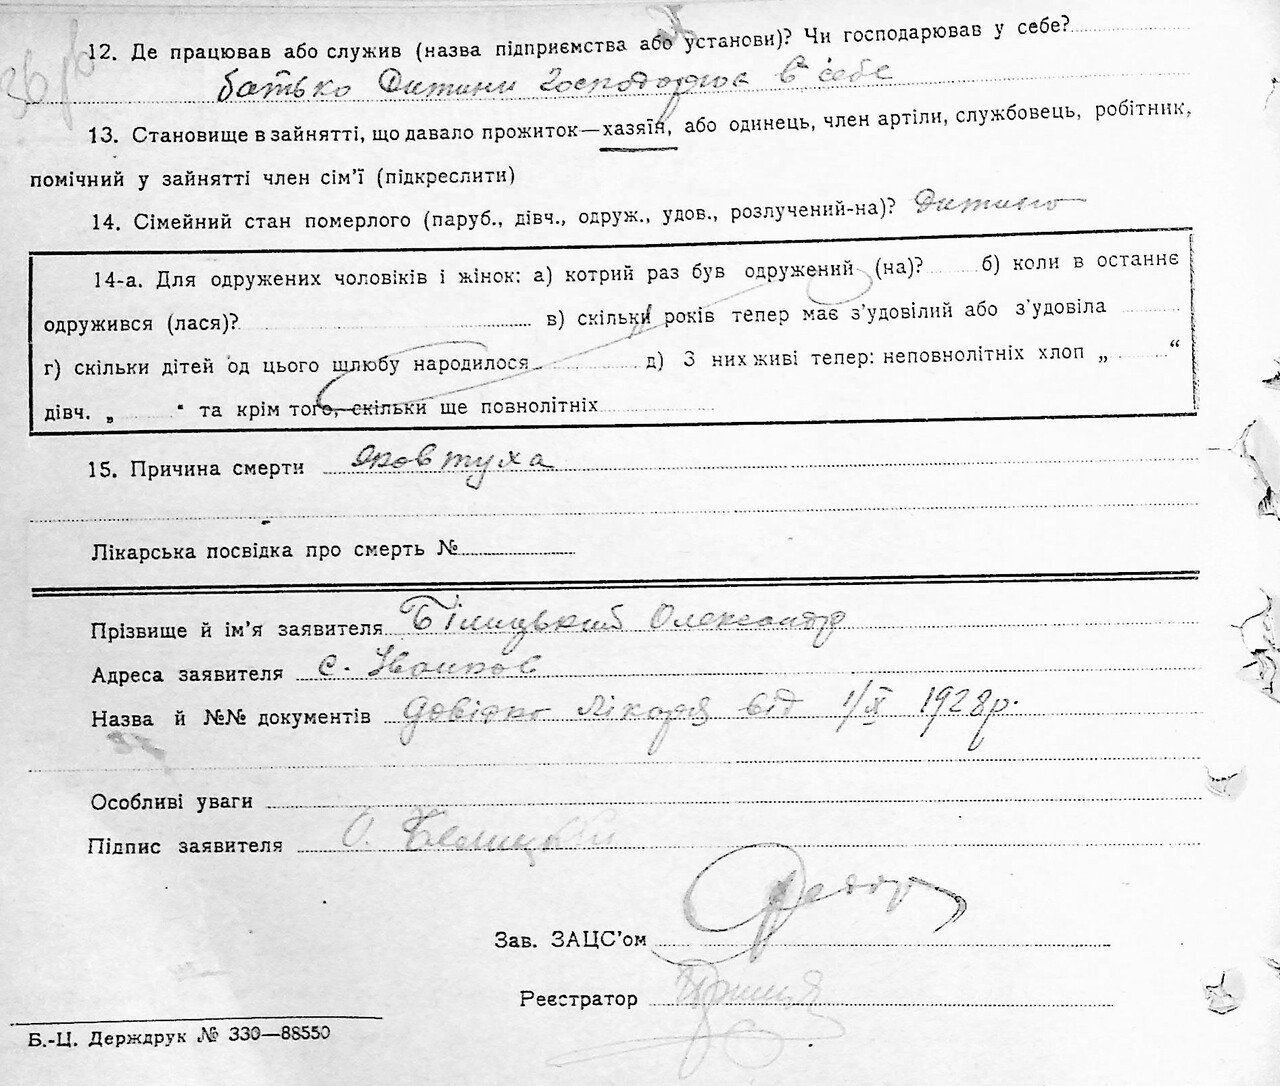 12. Де працював або служив (назва підприємства або установи)? Чи господарював у себе?
батько Дитини Господорює в себе
13. Становище в зайнятті, що давало прожиток—хазяїн, або одинець, член артіли, службовець, робітник,
помічний у зайнятті член сім’ї (підкреслити)
14. Сімейний стан померлого (паруб., дівч., одруж., удов., розлучений-на)? Дитина
14-а. Для одружених чоловіків і жінок: а) котрий раз був одружений (на)? б) коли в останнє
одружився (лася)? в) скільки років тепер має з’удовілий або з’удовіла
г) скільки дітей од цього шлюбу народилося д) З них живі тепер: неповнолітніх хлоп „ “
дівч. „ “ та крім того, скільки ще повнолітніх
15. Причина смерти
Лікарська посвідка про смерть №
Прізвище й ім’я заявителя Білицький Олександр
Адреса заявителя с. Іванков
Назва й №№ документів Довідка Лікаря від 1/X 1928р.
Особливі уваги
Підпис заявителя О. Белицкий
Зав. ЗАЦС’ом
Реєстратор
Б.-Ц. Держдрук № 330—88550